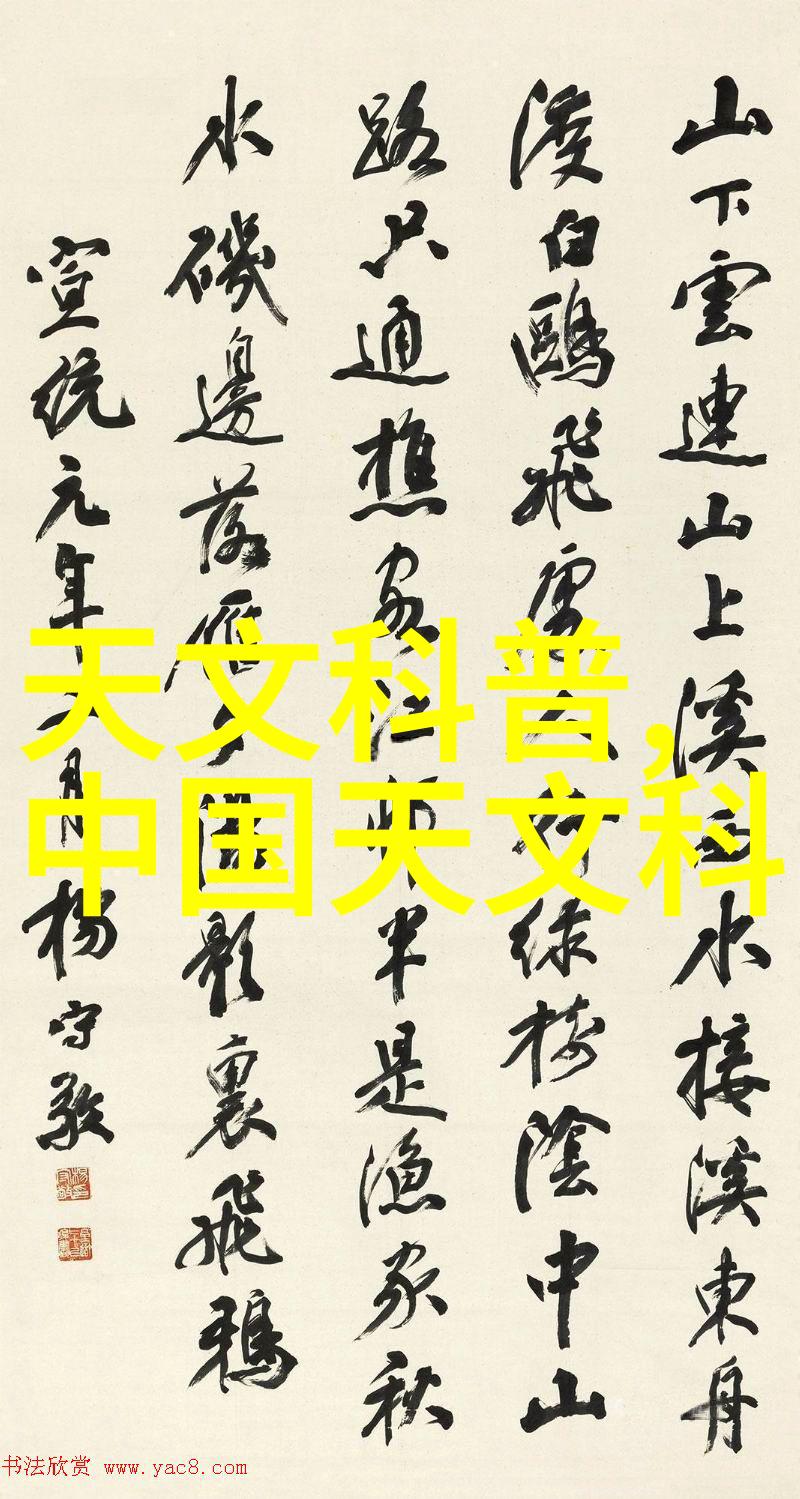 山下雲連山上溪西水接溪東舟
渡白鷗飛處人行綠樹陰中山
路只通樵客江邨半是漁家秋
水磯邊落雁夕陽影裏飛鴉
宣統元年六月楊守敬
天文科普,
中国天文科
书法欣赏 www.yac8.com